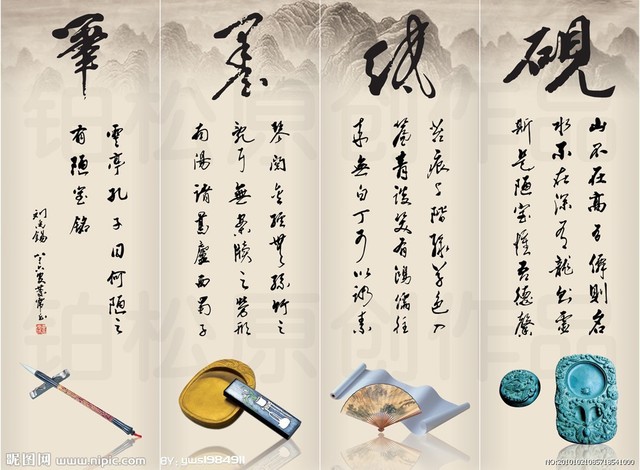 硯
山不在高有僊則名
水不在深有龍則靈
斯是陋室惟吾德馨
紙
苔痕上階綠草色入
簾青談笑有鴻儒往
來無白丁可以調素
墨
琴閱金經無絲竹之
亂耳無案牘之勞形
南陽諸葛廬西蜀子
筆
雲亭孔子曰何陋之
有陋室銘
刘禹锡
铂松原创作品
铂松原创作品
昵图网 www.nipic.com
BY: gws1984911
NO:20101021085718541000